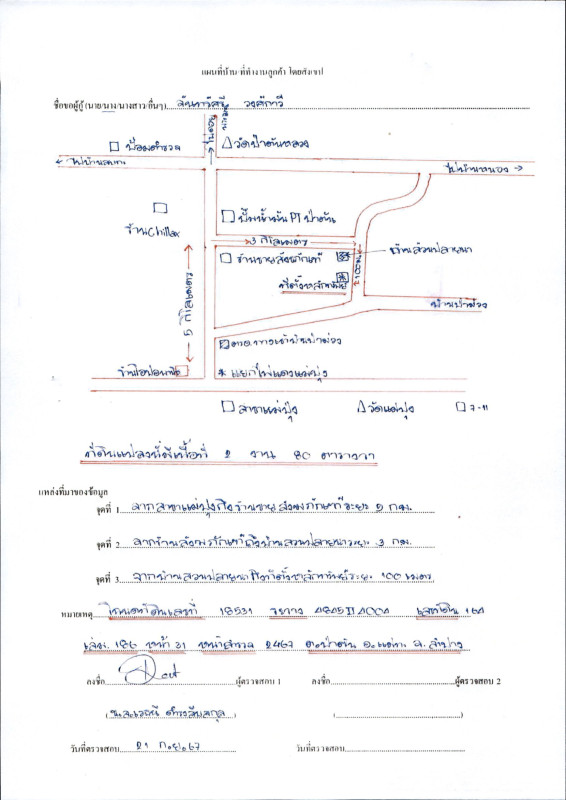 แผนที่บ้าน/ที่ทำงานลูกค้า โดยสังเขป
ชื่อขอผู้กู้ (นาย/นาง/นางสาว/อื่นๆ)
ป้อมตำรวจ
วัดป่าตันหลวง
ไปบ้านหนอง
ร้านChillax
ปั๊มน้ำมัน PT ป่าตัน
3 กิโลเมตร
ร้านขายสังฆภัณฑ์
บ้านสวนปลายนา
100 เมตร
ที่ตั้งหลักทรัพย์
5 กิโลเมตร
* แยกไฟแดงแม่ปุ่ง
สาขาแม่ปุ่ง
วัดแม่ปุ่ง
7-11
ที่ดินแปลงนี้มีเนื้อที่ 2 งาน 80 ตารางวา
แหล่งที่มาของข้อมูล
จุดที่ 1 จากสาขาแม่ปุ่งถึงร้านขายสังฆภัณฑ์ระยะ กม.
จุดที่ 2 จากร้านสังฆภัณฑ์ถึงบ้านสวนปลายนาระยะ 3 กม.
จุดที่ 3 จากบ้านสวนปลายนาถึงที่ตั้งหลักทรัพย์ระยะ 100 เมตร
หมายเหตุ โฉนดที่ดินเลขที่ 18531 ระวาง 4845 II 4004 เลขที่ดิน 164
เล่ม 186 หน้า 31 หน้าสำรวจ 2467 ต.ป่าตัน อ.แม่ทะ จ.ลำปาง
ลงชื่อ ผู้ตรวจสอบ 1 ลงชื่อ ผู้ตรวจสอบ 2
วันที่ตรวจสอบ 21 ก.ย.67 วันที่ตรวจสอบ